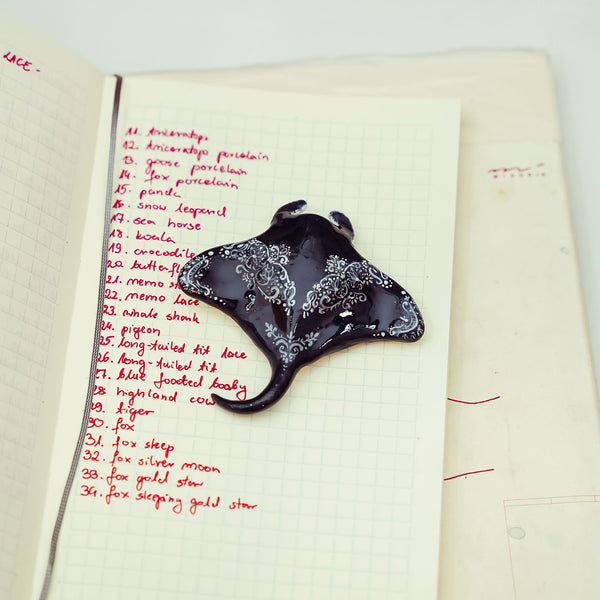 LACE -
11. triceratops
12. triceratops porcelain
13. goose porcelain
14. fox porcelain
15. panda
16. snow leopend
17. sea horse
18. koala
19. crocodile
20 butterfl
21. memo
22. memo lace
23. whale shark
24. pigeon
25. long-tuiled tit lace
26. long-tuiled tit
27. blue footed booby
28 highland cow
29. tiger
30. fox
31. fox sleep
32. fox silver moon
33. fox gold star
34. fox sleeping gold star